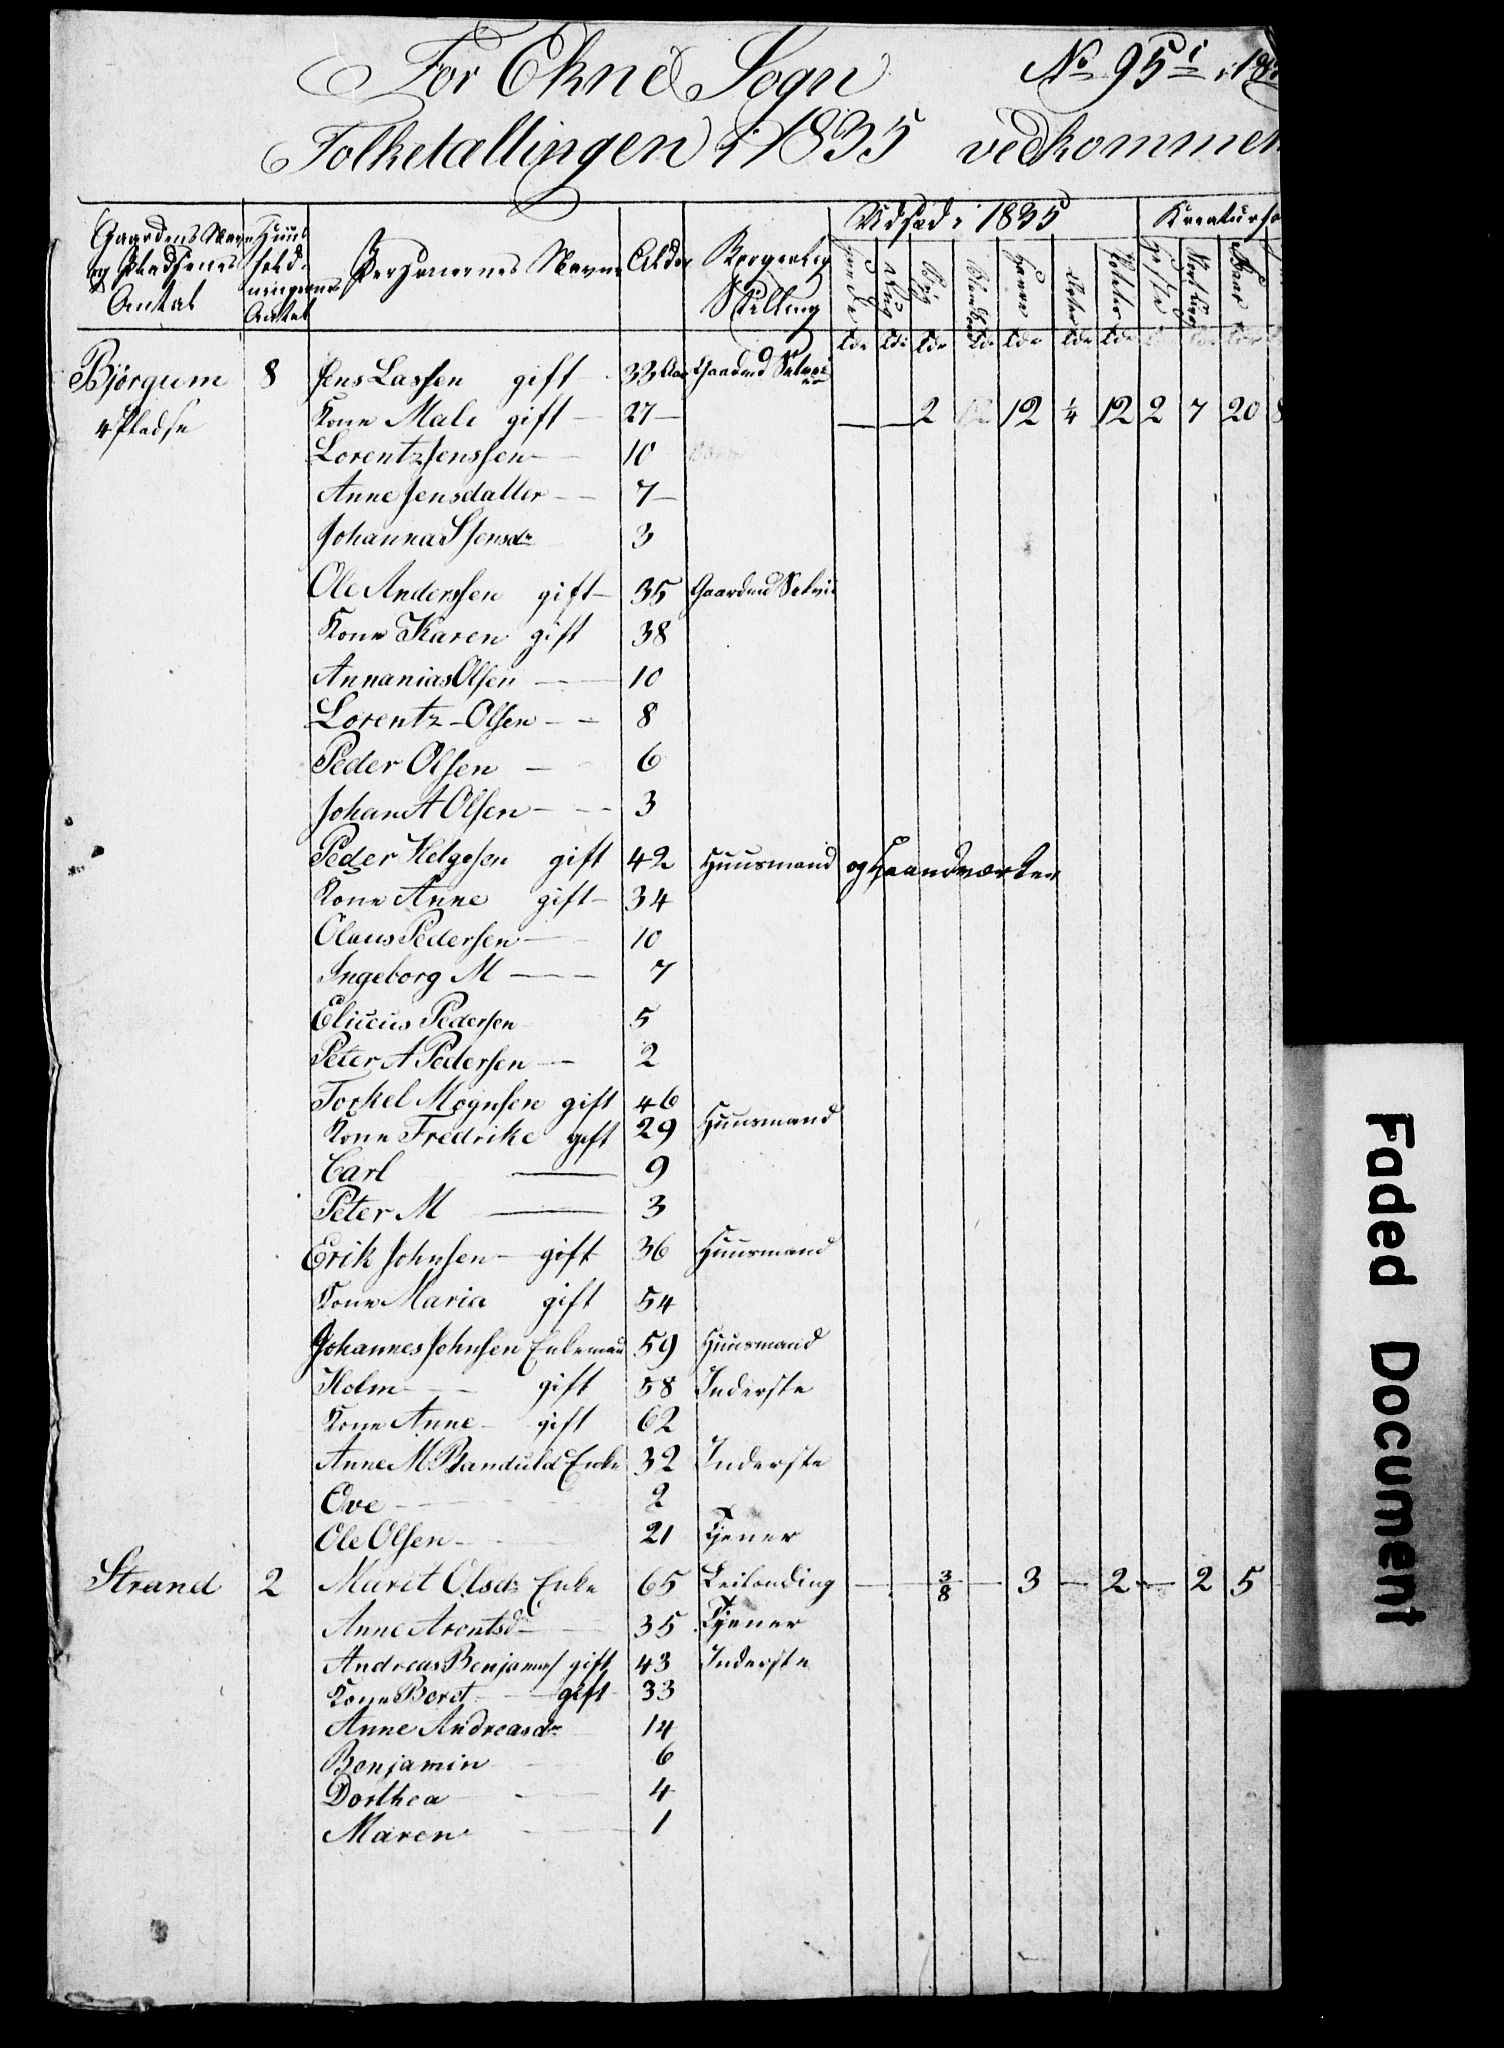 For Ekne Sogn No 95 i
Folketællingen i 1835 vedkommen
Gaardens Navn og Pladsenes Antal
Huusholdningernes Antal
Personernes Navne
Alder
Borgerlig Stilling
Udsæd i 1835
Kreaturho
Rug Byg Blandkorn Havre Erter Poteter Heste Stort Qvæg Faar
Tdr Tdr Tdr Tdr Tdr Tdr Tdr
Bjørgum 8 Jens Lassen gift 33 Aar Gaardmd Selveier
4 Pladse Kone Mali gift 27 — — 2 12 ¼ 12 2 7 20 8
Lorentz Jenssen 10
Anne Jensdatter 7
Johanna S Jensdr 3
Ole Anderssen gift 35 Gaardmd Selvei
Kone Karen gift 38
Annanias Olsen 10
Lorentz Olsen 8
Peder Olsen 6
Johan A Olsen 3
Peder Helgesen gift 42 Huusmand og Haandværker
Kone Anne gift 34
Olaus Pedersen 10
Ingeborg M 7
Eliceus Pedersen 5
Peter A Pedersen 2
Torkel Mognsen gift 46
Kone Fredrike gift 29 Huusmand
Carl 9
Peter M 3
Erik Johnsen gift 36 Huusmand
Kone Maria gift 54
Johannes Johnsen Enkemand 59 Huusmand
Holm gift 58 Inderste
Kone Anne gift 62
Anne M Banduld Enke 32 Inderste
Ove 2
Ole Olsen 21 Tjener
Strand 2 Marit Olsdr Enke 65 Leilænding — 3/8 — 3 — 2 — 2 5
Anne Arentsd 35 Tjener
Andreas Benjamins gift 43 Inderste
Kone Beret gift 33
Anne Andreasdr 14
Benjamin 6
Dorthea 4
Maren 1
Faded Document